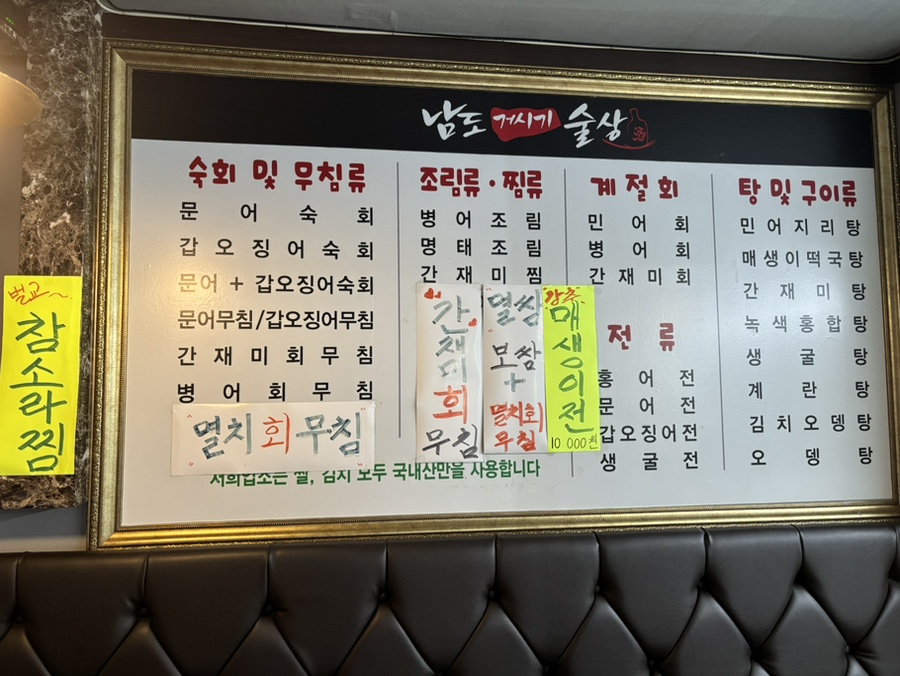 남도 거시기 술상
숙회 및 무침류
문어숙회
갑오징어숙회
문어 + 갑오징어숙회
문어무침/갑오징어무침
간재미회무침
병어회무침
멸치회무침
조림류·찜류
병어조림
명태조림
간재미찜
계절회
민어회
병어회
간재미회
전류
홍어전
문어전
갑오징어전
생굴전
탕 및 구이류
민어지리탕
매생이떡국탕
간재미탕
녹색홍합탕
생굴탕
계란탕
김치오뎅탕
오뎅탕
벌교~
참소라찜
간재미
회
무침
멸쌈
보쌈
+
멸치회
무침
강추
매생이전
10 000원
저희업소는 쌀, 김치 모두 국내산만을 사용합니다